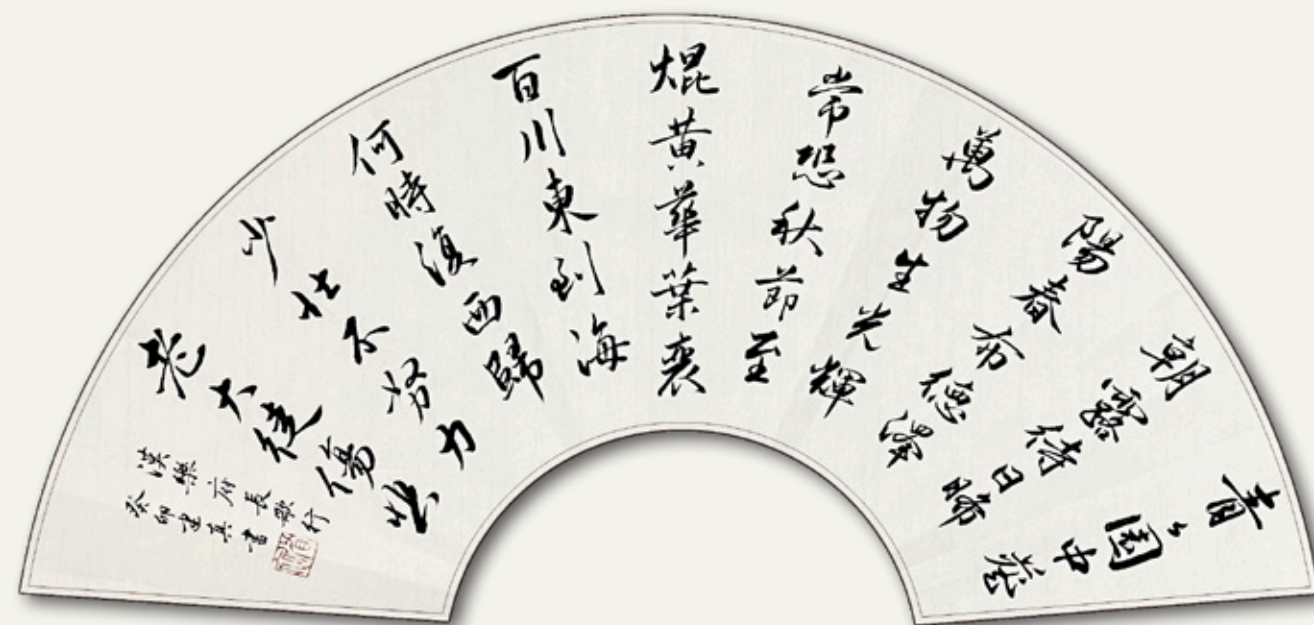 青々園中葵
朝露待日晞
陽春布德澤
萬物生光輝
常恐秋節至
焜黄華葉衰
百川東到海
何時復西歸
少壯不努力
老大徒傷悲
漢樂府長歌行
癸卯建真書